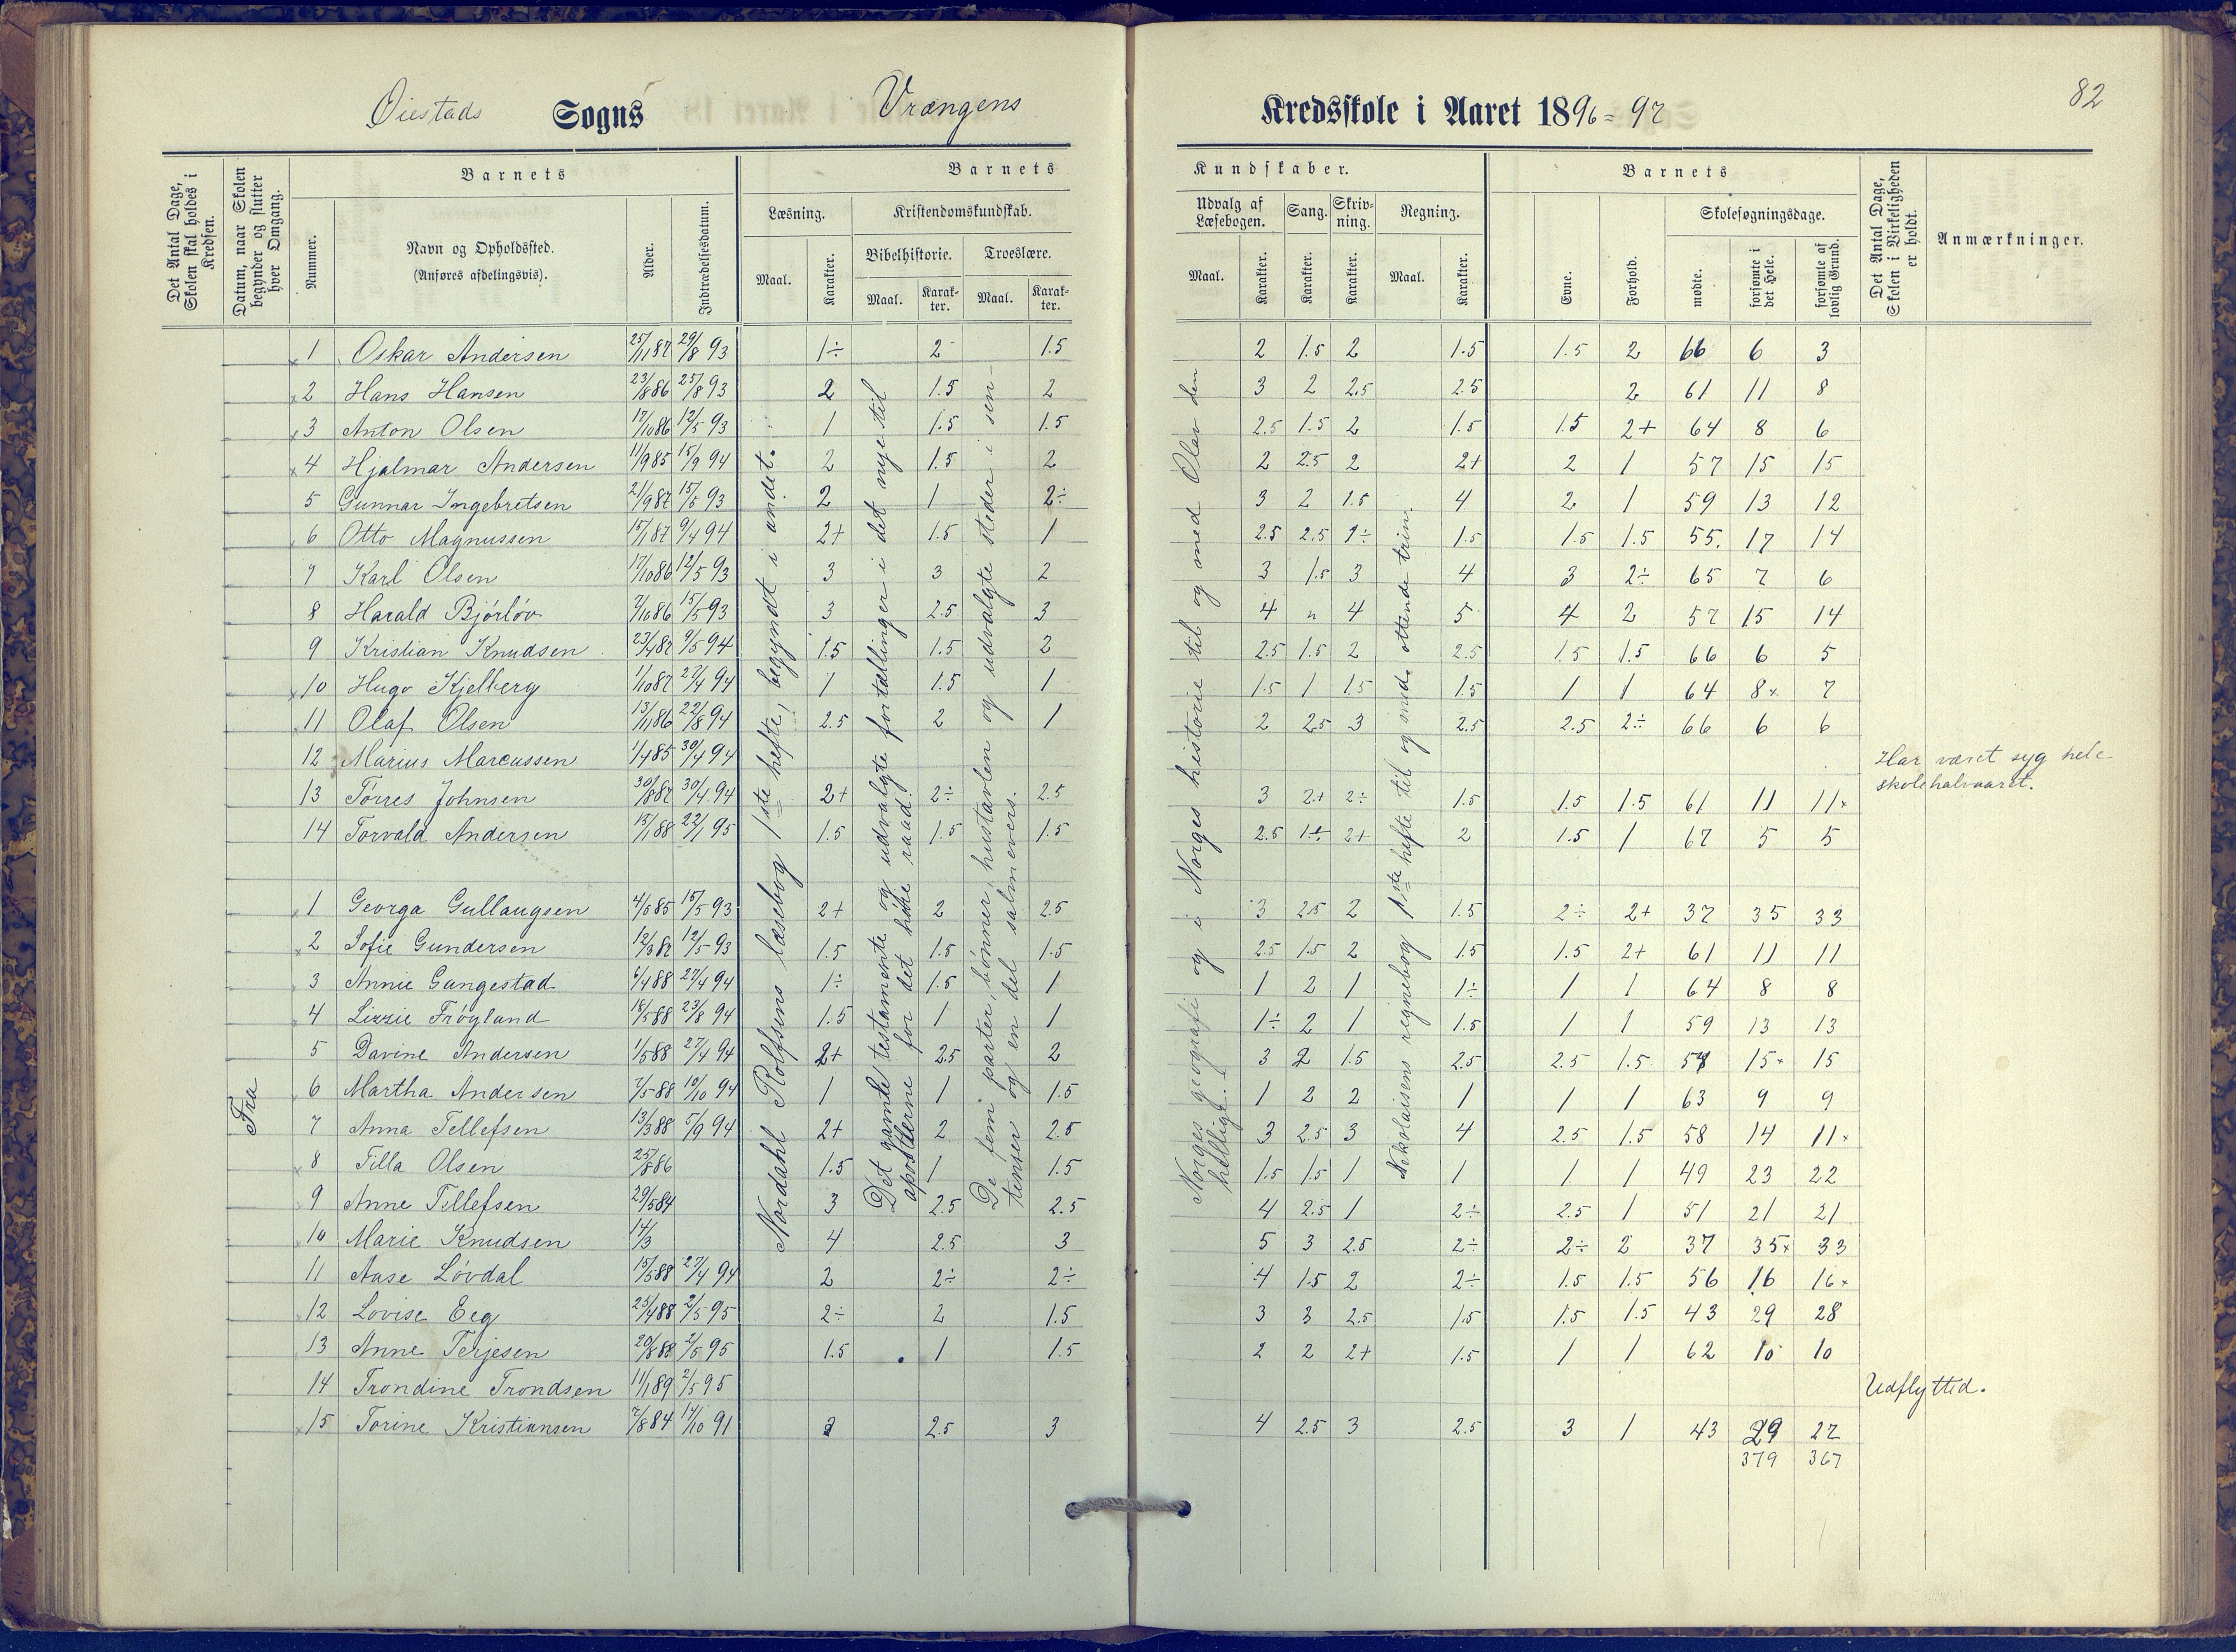 82
Øiestads Sogns Vrængens Kredsskole i Aaret 1896=97
Det Antal Dage, Skolen skal holdes i Kredsen.
Datum, naar Skolen begynder og slutter hver Omgang.
Barnets
Nummer.
Navn og Opholdssted.
(Anføres afdelingsvis).
Alder.
Indtrædelsesdatum.
Barnets
Læsning.
Maal.
Karakter.
Kristendomskundskab.
Bibelhistorie.
Maal.
Karakter.
Troeslære.
Maal.
Karakter.
Kundskaber.
Udvalg af Læsebogen.
Maal.
Karakter.
Sang.
Karakter.
Skrivning.
Karakter.
Regning.
Maal.
Karakter.
Barnets
Evne.
Forhold.
Skolesøgningsdage.
mødte.
forsømte i det Hele.
forsømte af lovlig Grund.
Det Antal Dage, Skolen i Virkeligheden er holdt.
Anmærkninger.
1 Oskar Andersen 25/11 87 29/8 93 1÷ 2 1.5 2 1.5 2 1.5 1.5 2 66 6 3
2 Hans Hansen 23/8 86 25/8 93 2 1.5 2 3 2 2.5 2.5 2 61 11 8
3 Anton Olsen 17/10 86 12/5 93 1 1.5 1.5 2.5 1.5 2 1.5 1.5 2+ 64 8 6
4 Hjalmar Andersen 11/9 85 15/9 94 2 1.5 2 2 2.5 2 2+ 2 1 57 15 15
5 Gunnar Ingebretsen 21/9 87 15/5 93 2 1 2÷ 3 2 1.5 4 2 1 59 13 12
6 Otto Magnussen 15/1 87 9/4 94 2+ 1.5 1 2.5 2.5 1.5 1.5 1.5 55. 17 14
7 Karl Olsen 17/10 86 12/5 93 3 3 2 3 1.5 3 4 3 2÷ 65 7 6
8 Harald Bjørløv 7/10 86 15/5 93 3 2.5 3 4 " 4 5 4 2 57 15 14
9 Kristian Knudsen 23/4 87 9/5 94 1.5 1.5 2 2.5 1.5 2 2.5 1.5 1.5 66 6 5
10 Hugo Kjelberg 1/10 87 27/4 94 1 1.5 1 1.5 1 1.5 1.5 1 1 64 8× 7
11 Olaf Olsen 13/11 86 22/8 94 2.5 2 1 2 2.5 3 2.5 2.5 2÷ 66 6 6
12 Marius Marcussen 1/4 85 30/4 94 Har været syg hele skolehalvaaret.
13 Tørres Johnsen 30/8 87 30/4 94 2+ 2÷ 2.5 3 2+ 2÷ 1.5 1.5 1.5 61 11 11×
14 Torvald Andersen 15/1 88 22/1 95 1.5 1.5 1.5 2.5 1÷ 2+ 2 1.5 1 67 5 5
1 Georga Gullaugsen 4/5 85 15/5 93 2+ 2 2.5 3 2.5 2 1.5 2÷ 2+ 37 35 33
2 Sofie Gundersen 12/3 87 12/5 93 1.5 1.5 1.5 2.5 1.5 2 1.5 1.5 2+ 61 11 11
3 Annie Gangestad 6/4 88 27/4 94 1÷ 1.5 1 1 2 1 1÷ 1 1 64 8 8
4 Lizzie Frøyland 18/5 88 23/8 94 1.5 1 1 1÷ 2 1 1.5 1 1 59 13 13
5 Davine Andersen 1/5 88 27/4 94 2+ 2.5 2 3 2 1.5 2.5 2.5 1.5 57 15× 15
Fra
6 Martha Andersen 7/5 88 10/10 94 1 1 1.5 1 2 2 1 1 1 63 9 9
7 Anna Tellefsen 13/3 88 5/9 94 2+ 2 2.5 3 2.5 3 4 2.5 1.5 58 14 11×
8 Tilla Olsen 25/8 86 1.5 1 1.5 1.5 1.5 1 1 1 1 49 23 22
9 Anne Tellefsen 29/5 84 3 2.5 2.5 4 2.5 1 2÷ 2.5 1 51 21 21
10 Marie Knudsen 14/3 4 2.5 3 5 3 2.5 2÷ 2÷ 2 37 35× 33
11 Aase Løvdal 15/5 88 27/4 94 2 2÷ 2÷ 4 1.5 2 2÷ 1.5 1.5 56 16 16×
12 Lovise Eeg 25/4 88 2/5 95 2÷ 2 1.5 3 3 2.5 1.5 1.5 1.5 43 29 28
13 Anne Terjesen 20/8 88 2/5 95 1.5 1 1.5 2 2 2+ 1.5 1 1 62 10 10
14 Trondine Trondsen 11/1 89 2/5 95 Udflyttid.
15 Torine Kristiansen 7/8 84 14/10 91 3 2.5 3 4 2.5 3 2.5 3 1 43 29 27
379 367
Nordahl Rolfsens læsebog 1ste hefte, begyndt i andet.
Det gamle testamente og udvalgte fortællinger i det nye til
apostlerne for det høie raad.
De fem parter, bønner, hustavlen og udvalgte steder i sen-
tenser og en del salmevers.
Norges geografi og i Norges historie til og med Olav den
hellige.
Nikolaisens regnebog 1ste hefte til og med ottende trin.